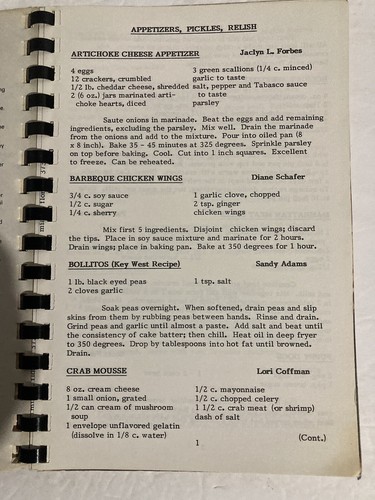 APPETIZERS, PICKLES, RELISH
ARTICHOKE CHEESE APPETIZER Jaclyn L. Forbes
4 eggs 3 green scallions (1/4 c. minced)
12 crackers, crumbled garlic to taste
1/2 lb. cheddar cheese, shredded salt, pepper and Tabasco sauce
2 (6 oz.) jars marinated arti- to taste
choke hearts, diced parsley
Saute onions in marinade. Beat the eggs and add remaining
ingredients, excluding the parsley. Mix well. Drain the marinade
from the onions and add to the mixture. Pour into oiled pan (8
x 8 inch). Bake 35 - 45 minutes at 325 degrees. Sprinkle parsley
on top before baking. Cool. Cut into 1 inch squares. Excellent
to freeze. Can be reheated.
BARBEQUE CHICKEN WINGS Diane Schafer
3/4 c. soy sauce 1 garlic clove, chopped
1/2 c. sugar 2 tsp. ginger
1/4 c. sherry chicken wings
Mix first 5 ingredients. Disjoint chicken wings; discard
the tips. Place in soy sauce mixture and marinate for 2 hours.
Drain wings; place in baking pan. Bake at 350 degrees for 1 hour.
BOLLITOS (Key West Recipe) Sandy Adams
1 lb. black eyed peas 1 tsp. salt
2 cloves garlic
Soak peas overnight. When softened, drain peas and slip
skins from them by rubbing peas between hands. Rinse and drain.
Grind peas and garlic until almost a paste. Add salt and beat until
the consistency of cake batter; then chill. Heat oil in deep fryer
to 350 degrees. Drop by tablespoons into hot fat until browned.
Drain.
CRAB MOUSSE Lori Coffman
8 oz. cream cheese 1/2 c. mayonnaise
1 small onion, grated 1/2 c. chopped celery
1/2 can cream of mushroom 1 1/2 c. crab meat (or shrimp)
soup dash of salt
1 envelope unflavored gelatin
(dissolve in 1/8 c. water)
1 (Cont.)